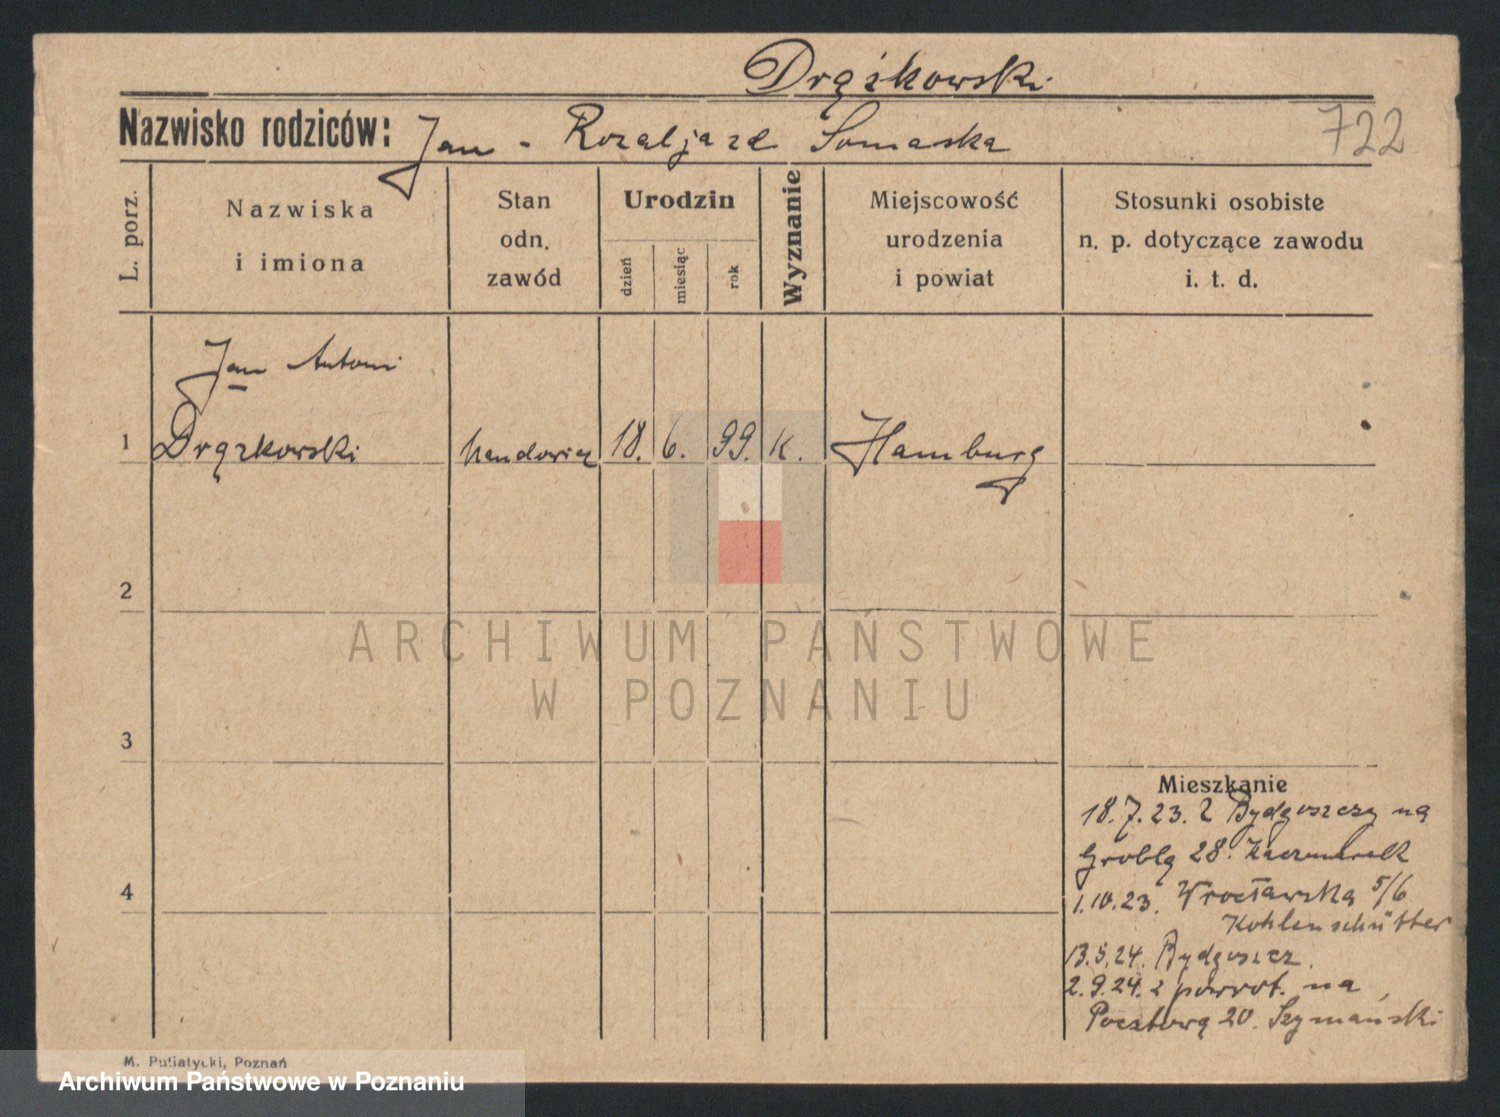 Drążkowski
Nazwisko rodziców: Jan - Rozalja zd Somaska
722
L. porz.
Nazwiska
i imiona
Stan
odn.
zawód
Urodzin
dzień
miesiąc
rok
Wyznanie
Miejscowość
urodzenia
i powiat
Stosunki osobiste
n. p. dotyczące zawodu
i. t. d.
Jan Antoni
1 Drązkowski handowiec 18. 6. 99. K. Hamburg
2
ARCHIWUM PAŃSTWOWE
W POZNANIU
3
Mieszkanie
18.7.23. z Bydgoszczy na
Groblą 28. Kaczmarek
4
1.10.23. Wrocławską 5/6
Kohlenschütter
13.5.24. Bydgoszcz.
2.9.24. z powrot. na
Pocztową 20. Szymański
M. Putiatycki, Poznań
Archiwum Państwowe w Poznaniu